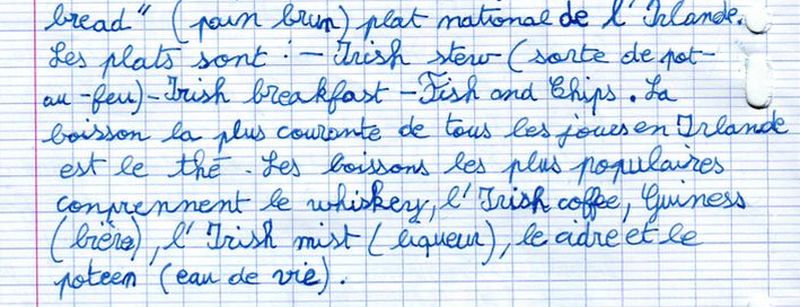 bread" (pain brun) plat national de l'Irlande.
Les plats sont : - Irish stew (sorte de pot-
au-feu) - Irish breakfast - Fish and Chips. La
boisson la plus courante de tous les joues en Irlande
est le thé. Les boissons les plus populaires
conprennent le whiskery, l'Irish coffee, Guiness
(bière), l'Irish mist (liqueur), le cidre et le
poteen (eau de vie).